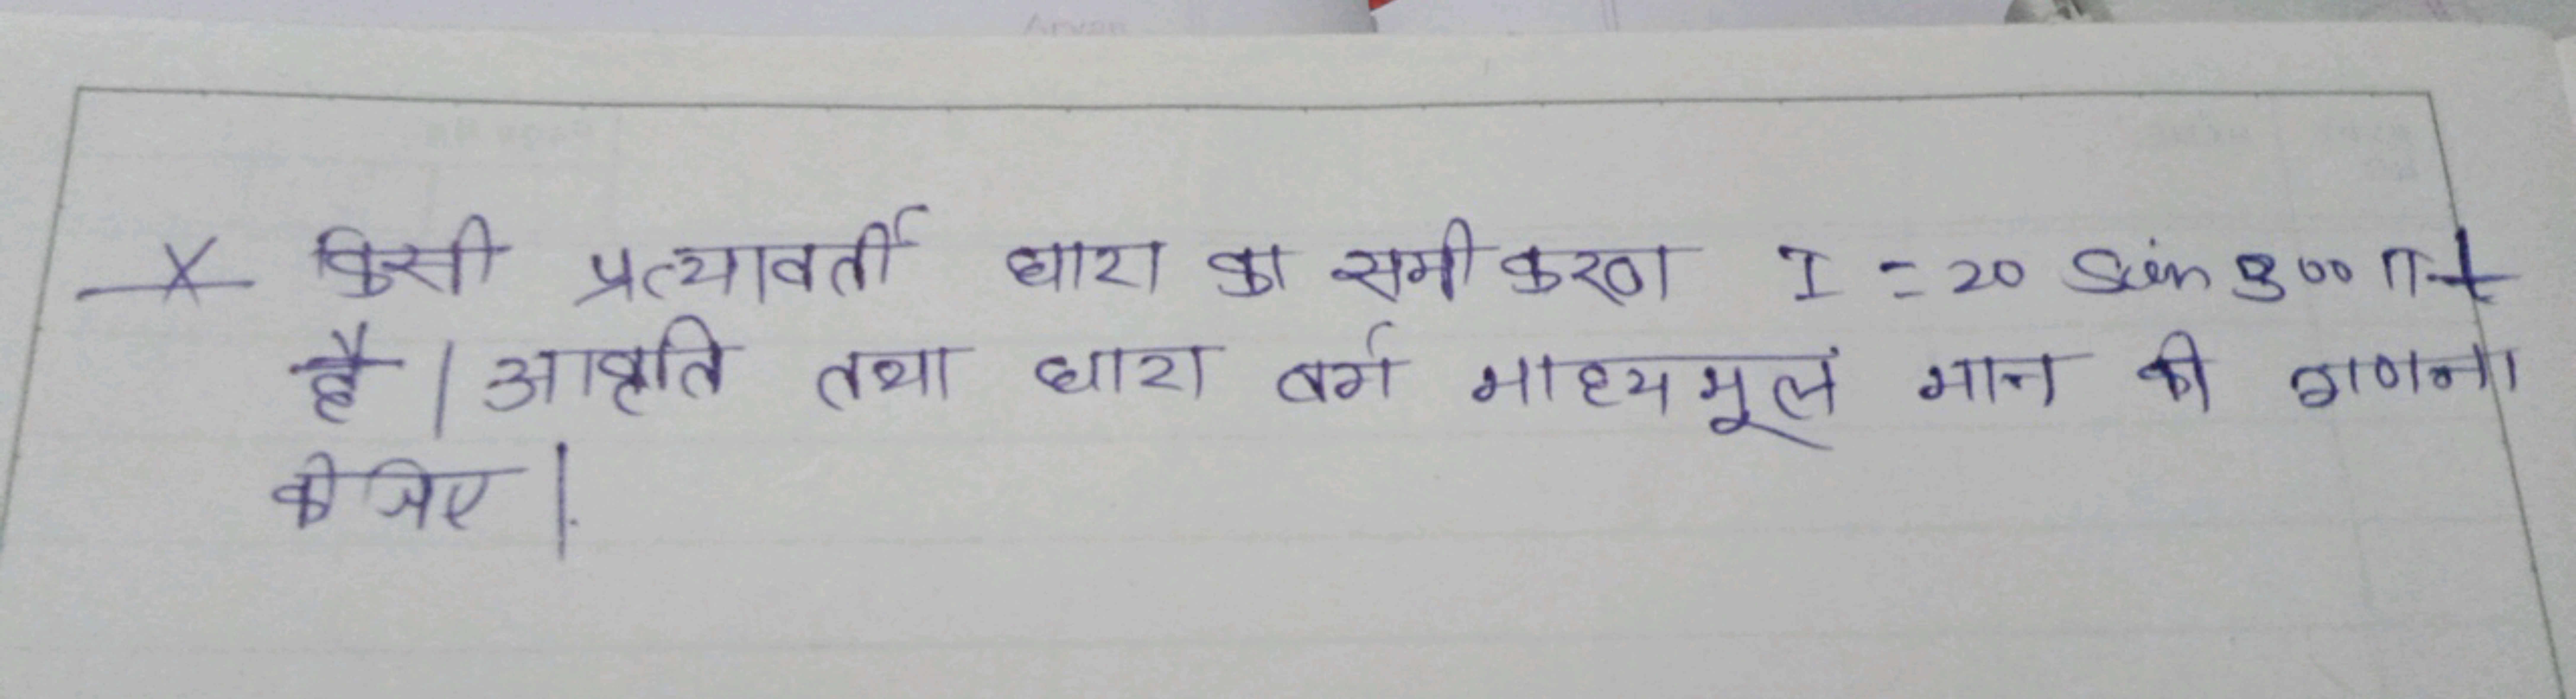 किसी प्रत्यावर्ती धारा का समीकरण I = 20 Sin 300 π t
है | आवृति तथा धारा वर्ग माध्य मूल मान की गणना
कीजिए |